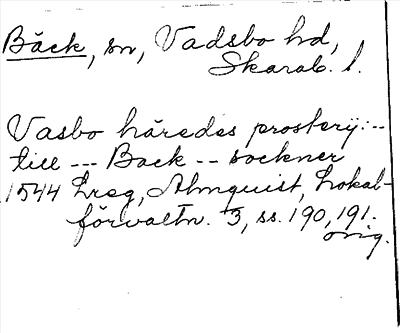 Bäck, sn, Vadsbo hd,
Skarab. l.
Vasbo häredes prostery: --
till --- Back -- sockner
1544 Lreg, Almquist, Lokal-
förvaltn. 3, ss. 190, 191.
orig.